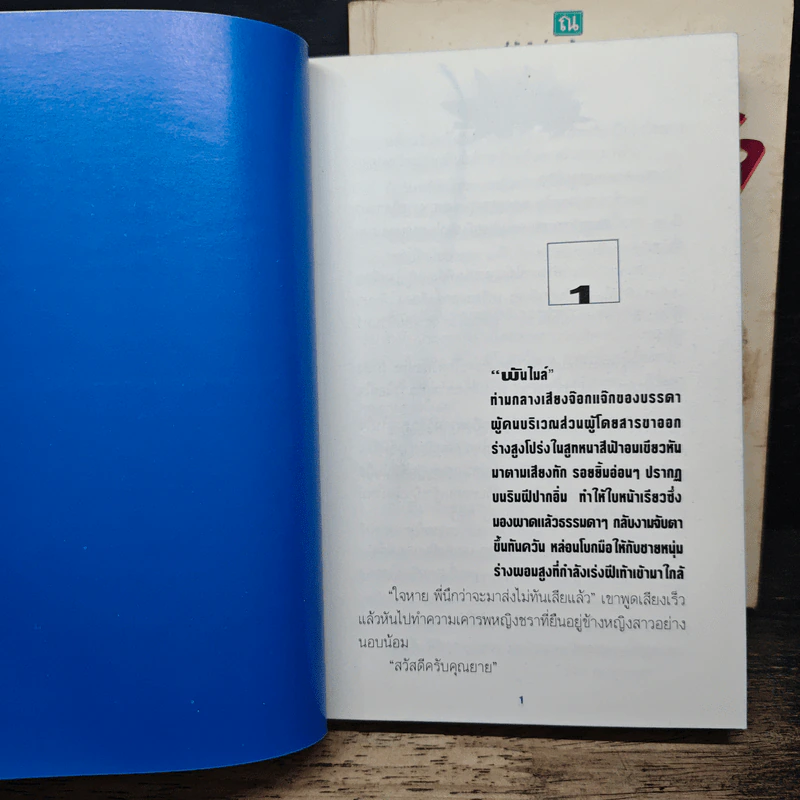 ณ
1
“พันไมล์”
ท่ามกลางเสียงจ๊อกแจ๊กของบรรดา
ผู้คนบริเวณส่วนผู้โดยสารขาออก
ร่างสูงโปร่งในสูทหนาสีฟ้าอมเขียวหัน
มาตามเสียงทัก รอยยิ้มอ่อนๆ ปรากฏ
บนริมฝีปากอิ่ม ทำให้ใบหน้าเรียวซึ่ง
มองผาดแล้วธรรมดาๆ กลับงามจับตา
ขึ้นทันควัน หล่อนโบกมือให้กับชายหนุ่ม
ร่างผอมสูงที่กำลังเร่งฝีเท้าเข้ามาใกล้
“ใจหาย พี่นึกว่าจะมาส่งไม่ทันเสียแล้ว” เขาพูดเสียงเร็ว
แล้วหันไปทำความเคารพหญิงชราที่ยืนอยู่ข้างหญิงสาวอย่าง
นอบน้อม
“สวัสดีครับคุณยาย”
1